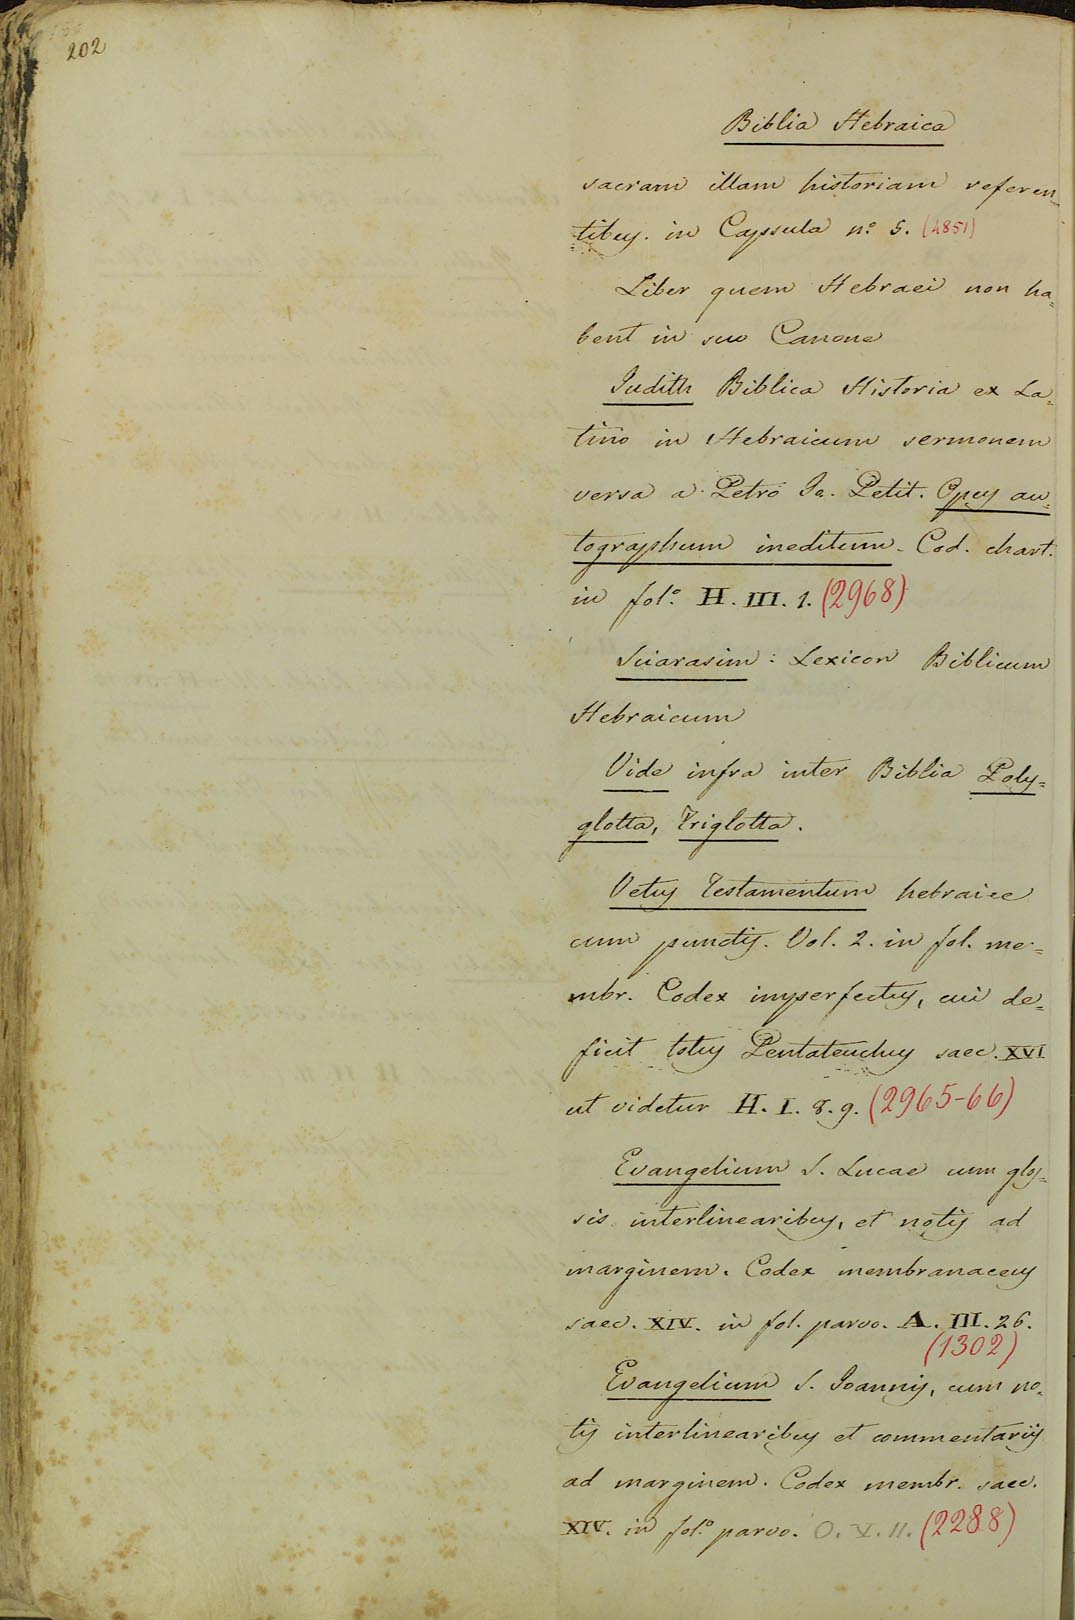 202
Biblia Hebraica
sacram illam historiam referen=
tibus. in Capsula n.º 5. (4851)
Liber quem Hebraei non ha=
bent in suo Canone
Judith Biblica Historia ex La=
tino in Hebraicum sermonem
versa a Petro Ia. Petit. Opus au=
tographum ineditum. Cod. chart.
in fol.º H. III. 1. (2968)
Sciarasim: Lexicon Biblicum
Hebraicum
Vide infra inter Biblia Poly=
glotta, Triglotta.
Vetus Testamentum hebraice
cum punctis. Vol. 2. in fol. me=
mbr. Codex imperfectus, cui de=
ficit totus Pentateuchus saec. XVI
ut videtur H. I. 8. 9. (2965-66)
Evangelium S. Lucae cum glos=
sis interlinearibus, et notis ad
marginem. Codex membranaceus
saec. XIV. in fol. parvo. A. III. 26.
(1302)
Evangelium S. Joannis, cum no=
tis interlinearibus et commentariis
ad marginem. Codex membr. saec.
XIV. in fol.º parvo. O. V. 11. (2288)